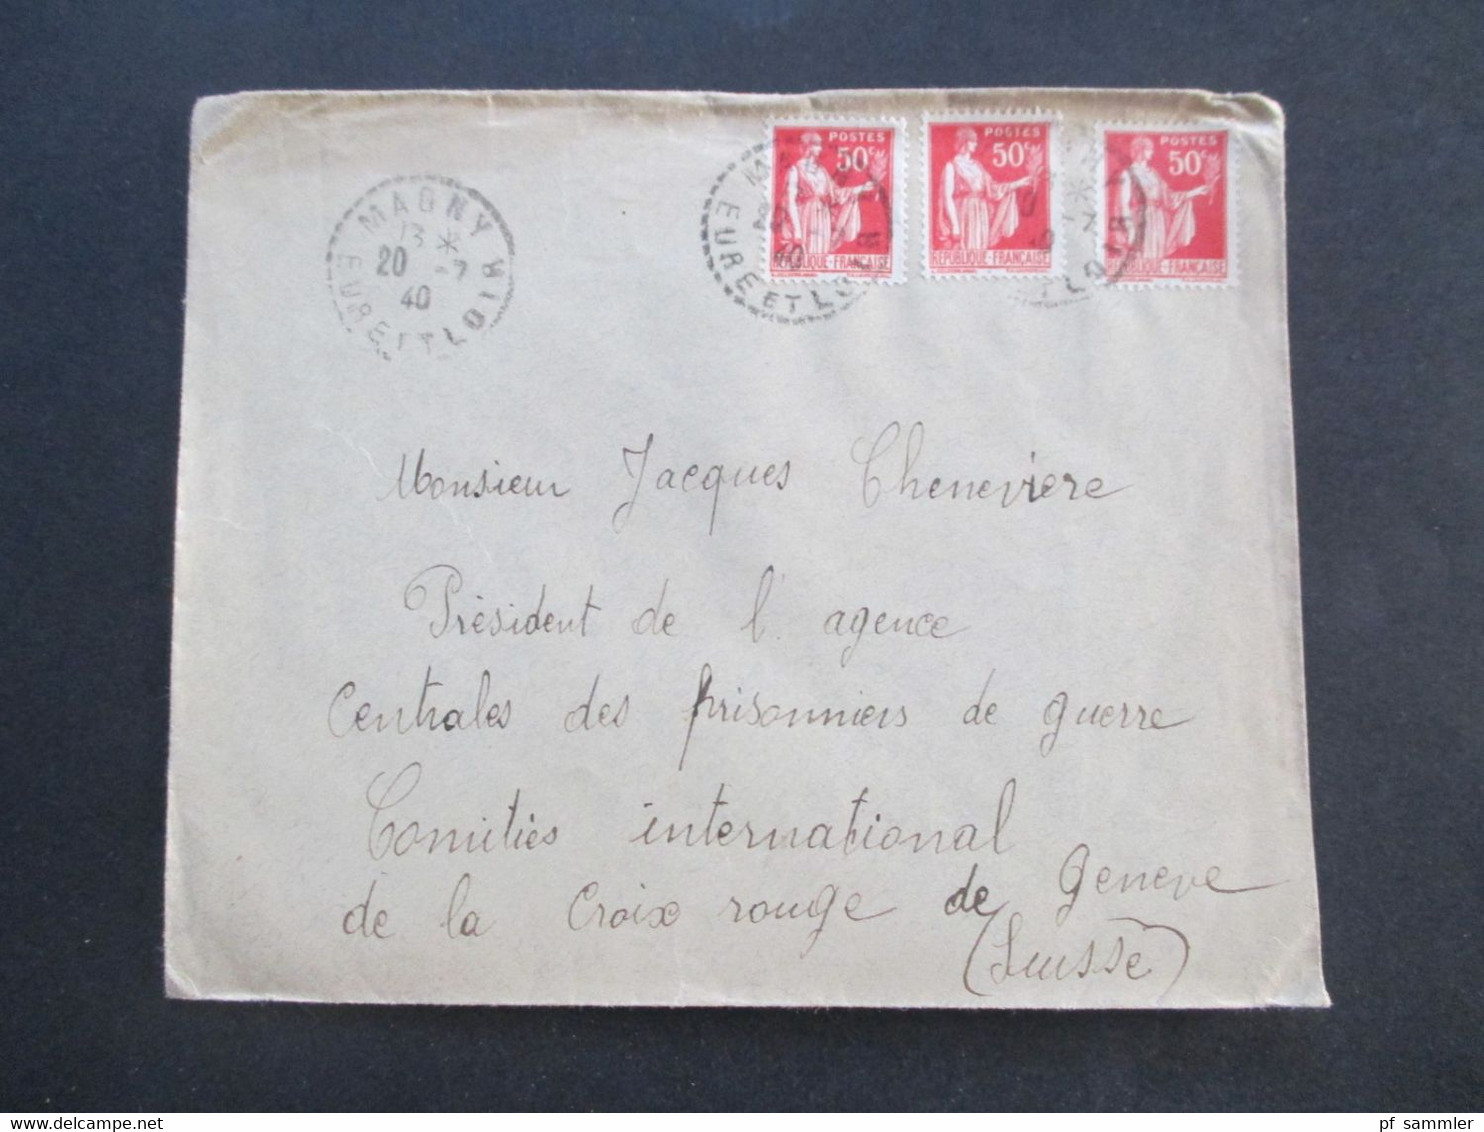 POSTES
50c
RÉPUBLIQUE-FRANÇAISE
POSTES
50c
RÉPUBLIQUE-FRANÇAISE
POSTES
50c
RÉPUBLIQUE-FRANÇAISE
MAGNY
13 *
20 -7
40
EURE ET LOIR
EURE ET LOIR
40
Monsieur Jacques Cheneviere
Président de l'agence
Centrales des prisonniers de guerre
Comitiés international
de la Croix rouge de Geneve
(Suisse)
pf_sammler